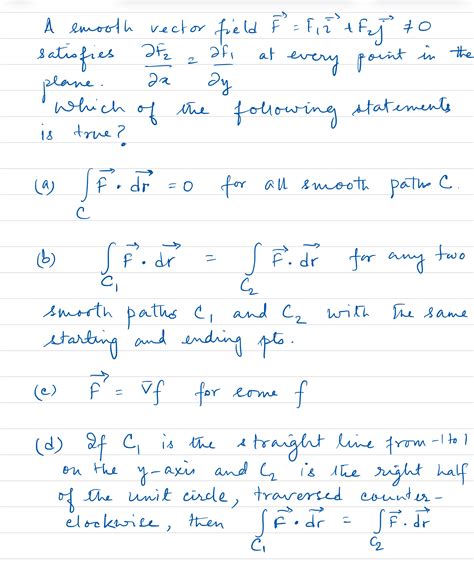 A smooth vector field F⃗ = F₁i⃗ + F₂j⃗ ≠ 0
satisfies ∂F₂/∂x = ∂F₁/∂y at every point in the
plane.
Which of the following statements
is true?
(a) ∫_C F⃗ · dr⃗ = 0 for all smooth paths C.
(b) ∫_C₁ F⃗ · dr⃗ = ∫_C₂ F⃗ · dr⃗ for any two
smooth paths C₁ and C₂ with the same
starting and ending pts.
(c) F⃗ = ∇̄f for some f
(d) If C₁ is the straight line from -1 to 1
on the y-axis and C₂ is the right half
of the unit circle, traversed counter-
clockwise, then ∫_C₁ F⃗ · dr⃗ = ∫_C₂ F⃗ · dr⃗